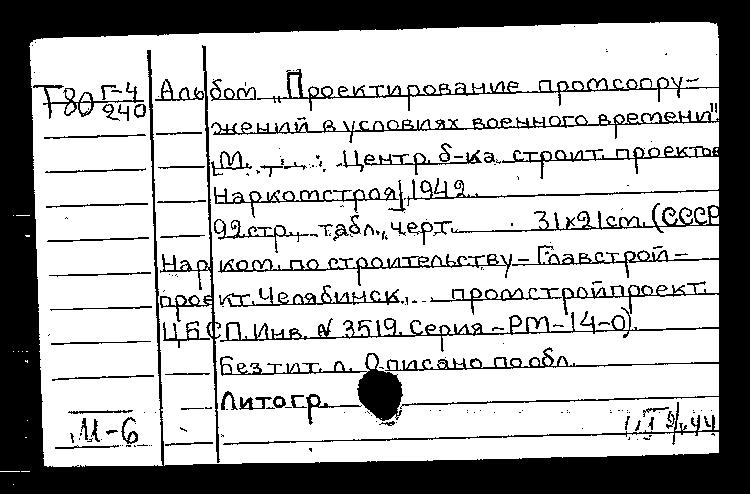 Т80 Г-4/240
Альбом „Проектирование промсоору-
жений в условиях военного времени".
М., Центр. б-ка строит. проектов
Наркомстроя, 1942.
92 стр., табл., черт. 31х21 cm. (СССР
Нарком. по строительству - Главстрой-
проект. Челябинск. промстройпроект.
ЦБСП. Инв. № 3519. Серия - РМ-14-0).
Без тит. л. Описано по обл.
Литогр.
М-6